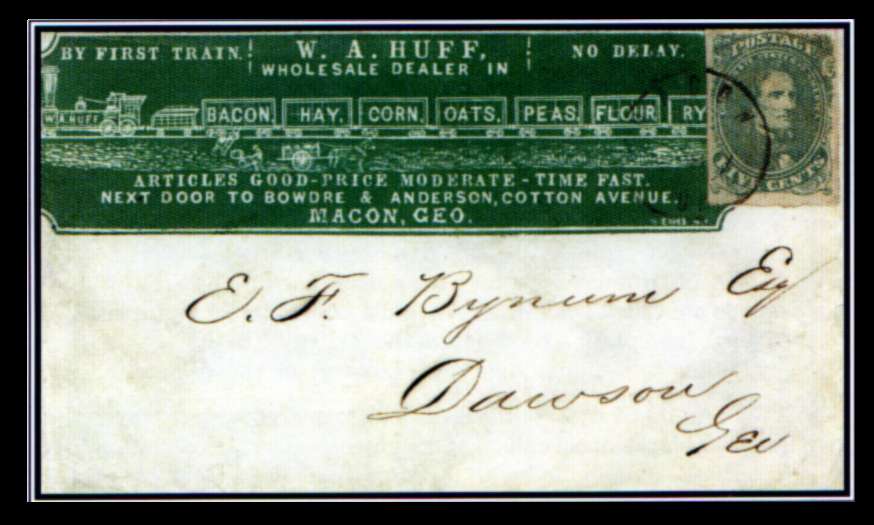 BY FIRST TRAIN. W. A. HUFF, NO DELAY.
WHOLESALE DEALER IN
W.A.HUFF BACON. HAY. CORN. OATS. PEAS. FLOUR RY
ARTICLES GOOD-PRICE MODERATE-TIME FAST.
NEXT DOOR TO BOWDRE & ANDERSON, COTTON AVENUE.
MACON, GEO.
POSTAGE
FIVE CENTS
E. F. Bynum Esq
Dawson
Geo